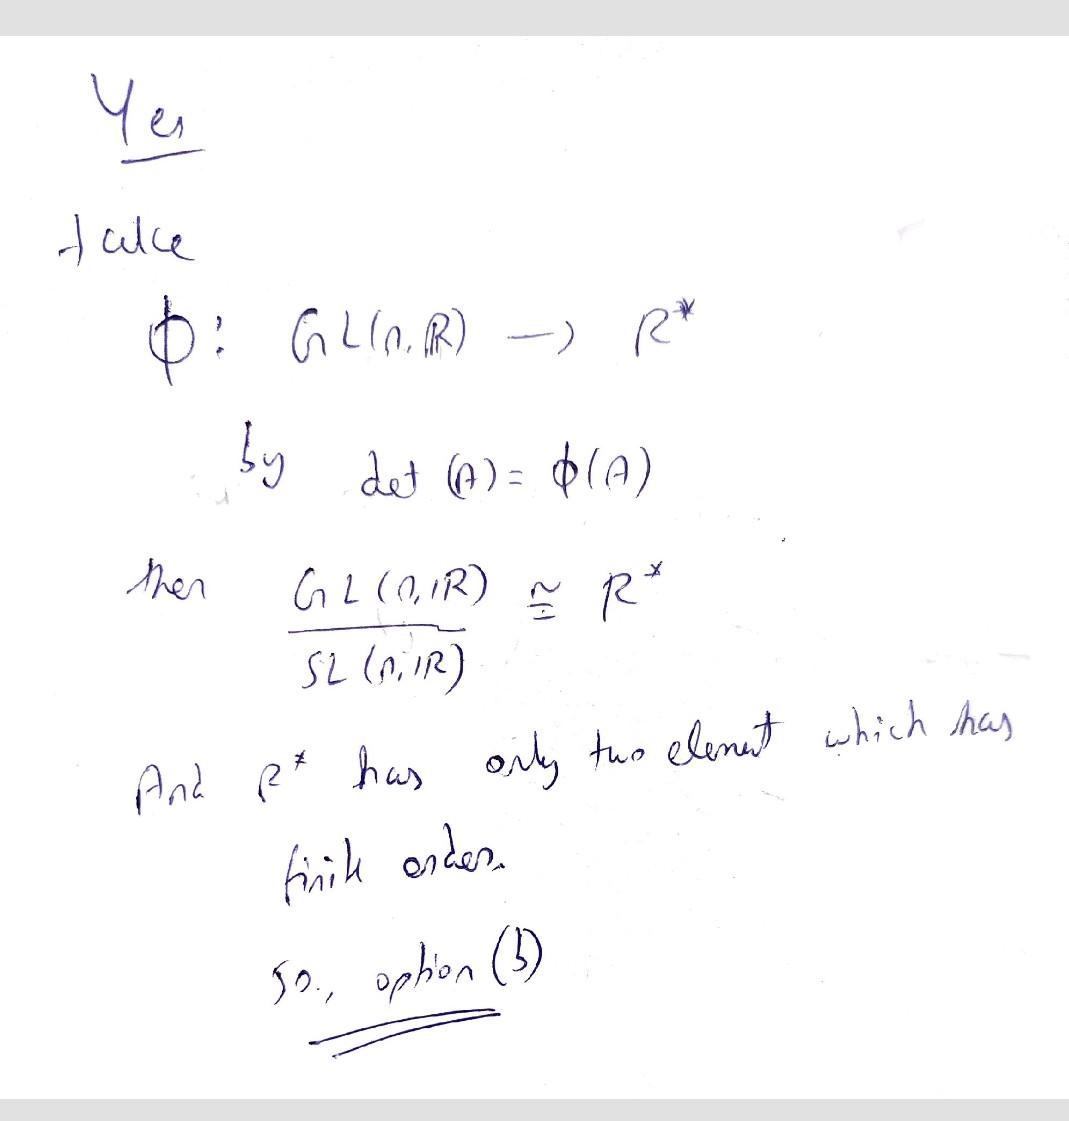 Yes
take
ϕ: GL(n, ℝ) → R*
by det (A) = ϕ(A)
then GL(n, ℝ) / SL(n, ℝ) ≅ R*
And R* has only two element which has
finite order.
so., option (b)